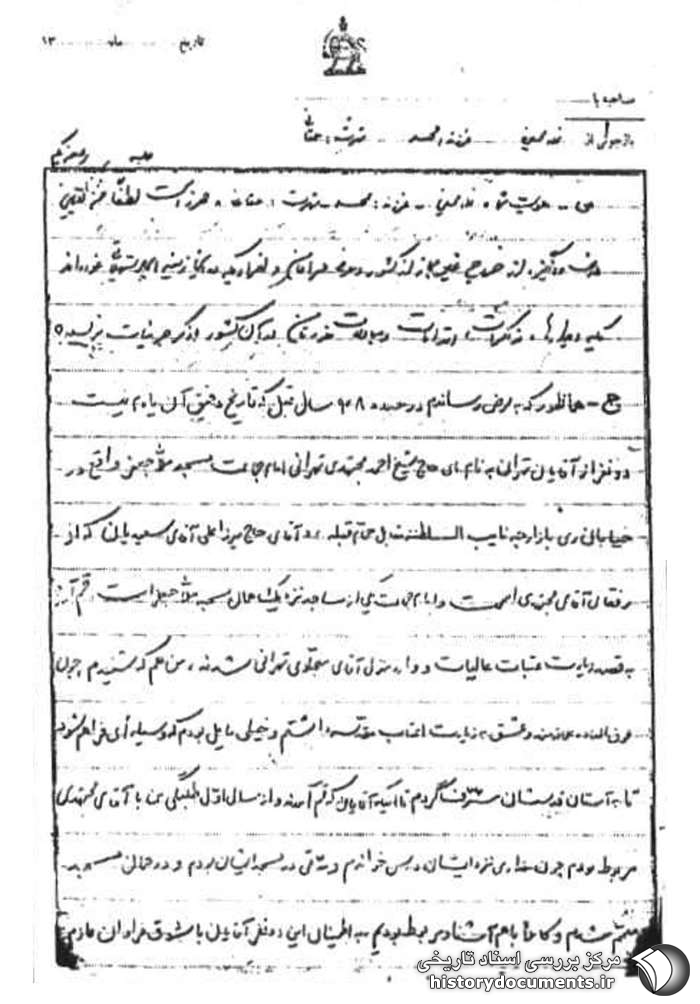 تاریخ ........ ماه ........ ۱۳
مصاحبه با
بازجوئی از فرزند: محمد شهرت:
جلسه
س- هویت شما فرزند: محمد شهرت: است لطفاً
خروج غیر مجاز از کشور و
کلیه دیدارها، مذاکرات، اقدامات و خودتان در آن کشور را ذکر جزئیات بنویسید
ج- همانطور که به عرض رساندم در حدود ۸ سال قبل که تاریخ دقیق آن یادم نیست
دو نفر از آقایان تهرانی به نام‌های حاج شیخ احمد مجتهدی تهرانی امام جماعت مسجد ملا جعفر واقع در
خیابان ری بازارچه نایب السلطنه مقابل حمام قبله و آقای حاج میرزا علی آقای سعیدیان که از
رفقای آقای مجتهدی است و امام جماعت یکی از مساجد نزدیک همان مسجد ملا جعفر است، قم آمدند
به قصد زیارت عتبات عالیات و وارد منزل آقای تهرانی شدند، من هم که شنیدم چون
فوق العاده علاقمند و عشق به زیارت اعتاب مقدسه داشتم و خیلی مایل بودم که وسیله‌ای فراهم شود
تا به آستان قدسشان مشرف گردم تا اینکه آقایان که قم آمدند و از سال اول طلبگی من با آقای مجتهدی
مربوط بودم چون مقداری نزد ایشان درس خواندم و مدتی در مسجد ایشان بودم و در همان مسجد
معمم شدم و کاملاً با هم آشنا و مربوط بودیم به اطمینان این دو نفر آقایان با شوق فراوان عازم
مرکز بررسی اسناد تاریخی
historydocuments.ir